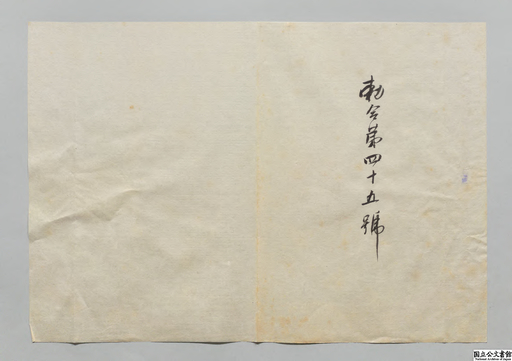 勅令第四十五號
国立公文書館
National Archives of Japan